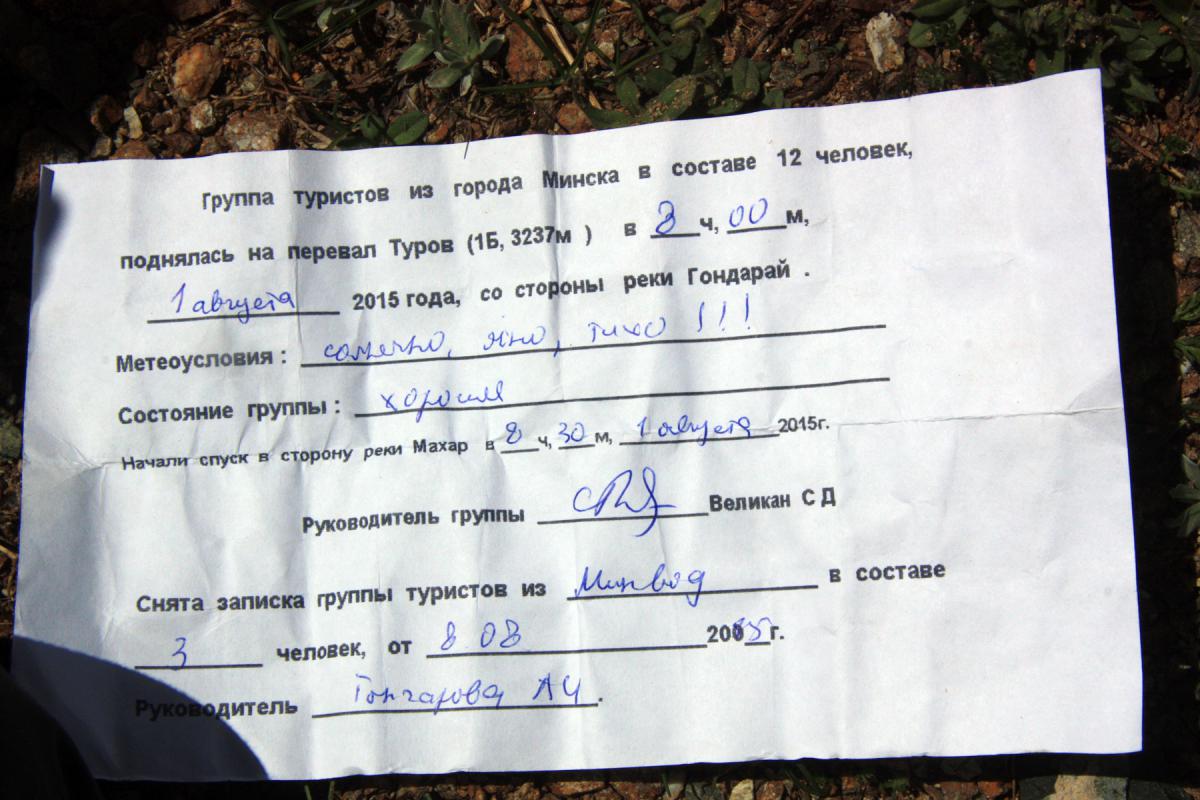 Группа туристов из города Минска в составе 12 человек,
поднялась на перевал Туров (1Б, 3237м ) в 8 ч, 00 м,
1 августа 2015 года, со стороны реки Гондарай .
Метеоусловия : солнечно, ясно, тихо !!!
Состояние группы : хорошее
Начали спуск в сторону реки Махар в 8 ч, 30 м, 1 августа 2015г.
Руководитель группы Великан С Д
Снята записка группы туристов из Минвод в составе
3 человек, от 8 08 2015 г.
Руководитель Гончарова АЧ .